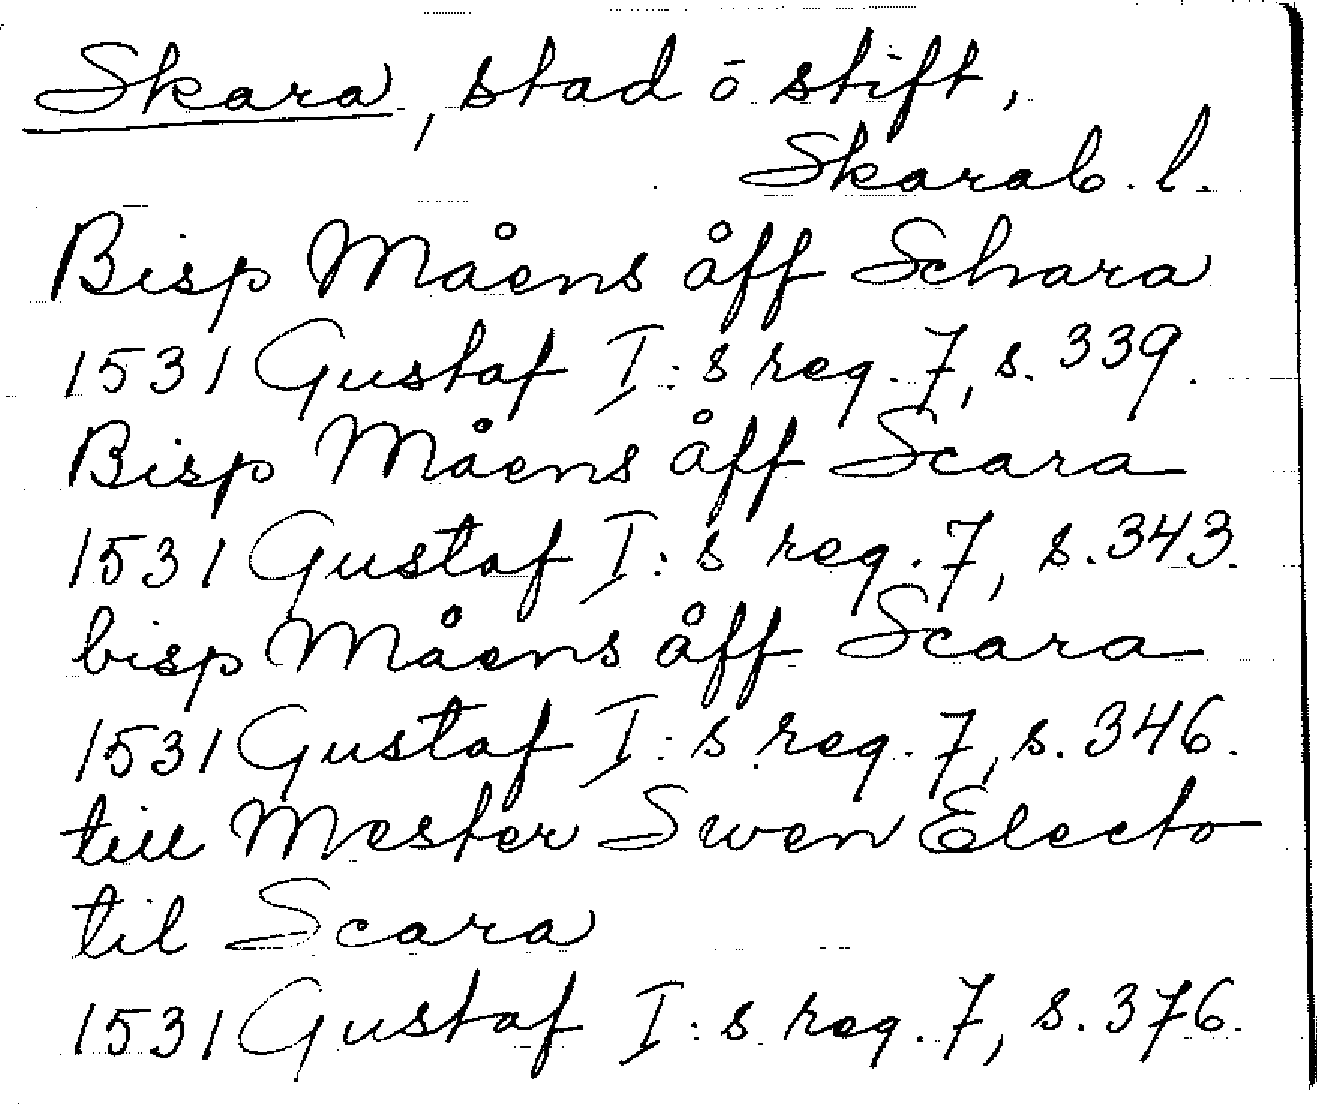 Skara, stad ō stift,
Skarab. l.
Bisp Måens åff Schara
1531 Gustaf I:s reg. 7, s. 339.
Bisp Måens åff Scara
1531 Gustaf I:s reg. 7, s. 343.
bisp Måens åff Scara
1531 Gustaf I:s reg. 7, s. 346.
till Mester Swen Electo
til Scara
1531 Gustaf I:s reg. 7, s. 376.